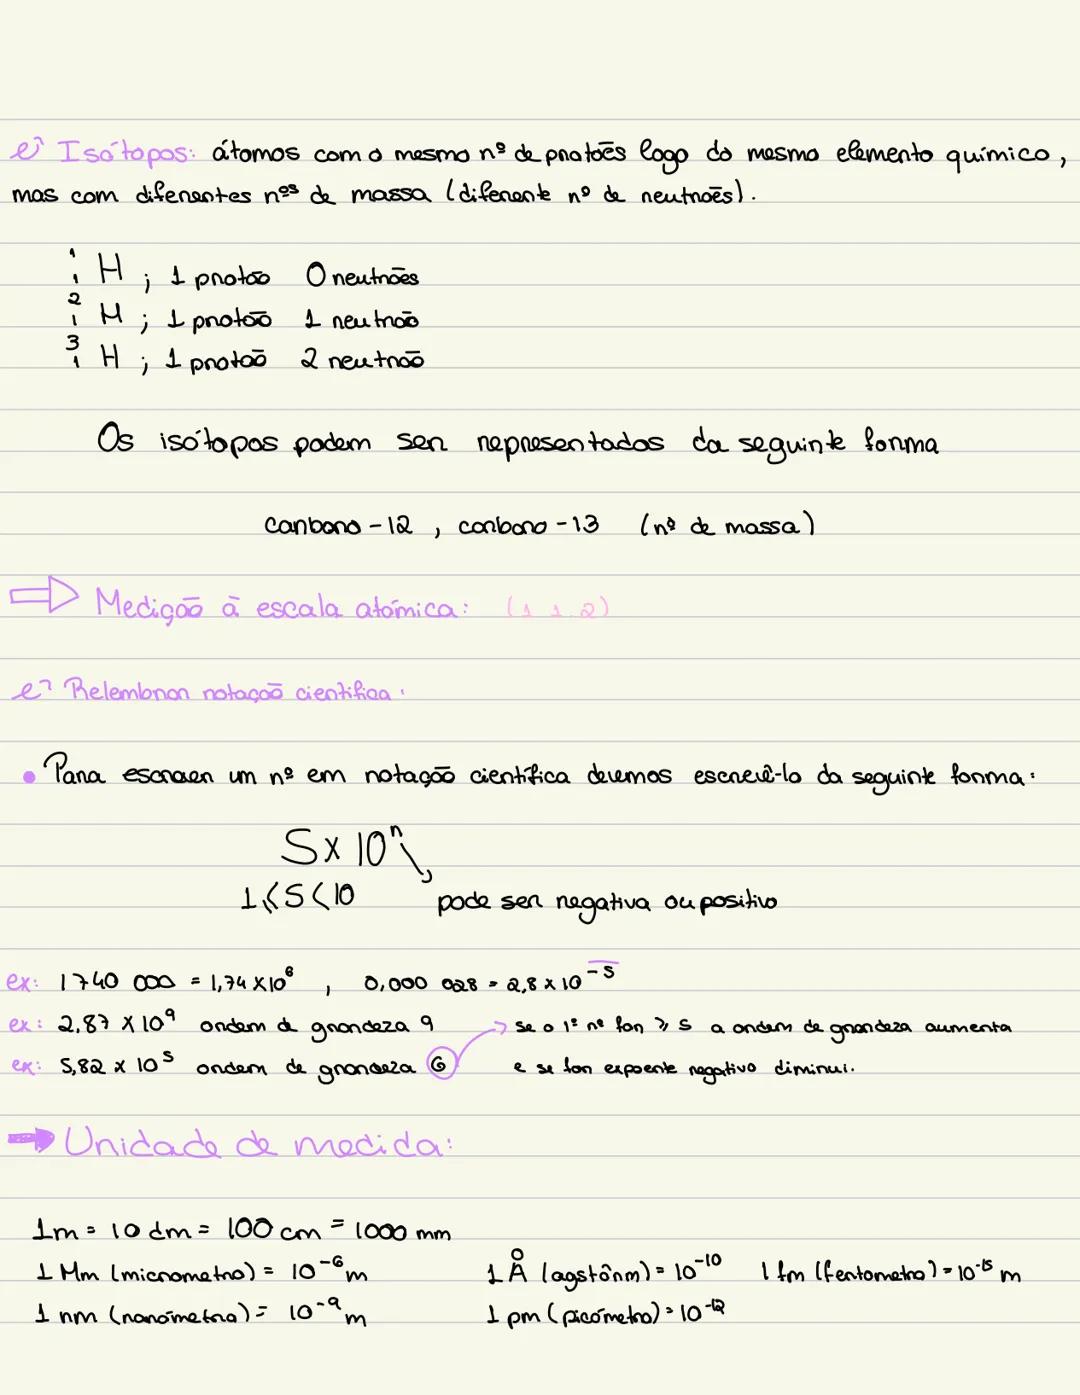 Isótopos: átomos com o mesmo nº de protões logo do mesmo elemento químico,
mas com diferentes nºs de massa (diferente nº de neutrões).
¹₁H ; 1 protão 0 neutrões
²₁H ; 1 protão 1 neutrão
³₁H ; 1 protão 2 neutrão
Os isótopos podem ser representados da seguinte forma
carbono-12, carbono-13 (nº de massa)
Medição à escala atómica: (1.1.2)
Relembrar notação científica:
• Para escrever um nº em notação científica devemos escrevê-lo da seguinte forma:
S x 10ⁿ
1 ⩽ S < 10 pode ser negativa ou positivo
ex: 1740 000 = 1,74 x 10⁶ , 0,000 028 = 2,8 x 10⁻⁵
ex: 2,87 x 10⁹ ordem de grandeza 9 → se o 1º nº for ⩾ 5 a ordem de grandeza aumenta
ex: 5,82 x 10⁵ ordem de grandeza 6 e se for expoente negativo diminui.
Unidade de medida:
1m = 10 dm = 100 cm = 1000 mm
1 Mm (micrometro) = 10⁻⁶ m 1 Å (agstônm) = 10⁻¹⁰ 1 fm (fentometro) = 10⁻¹⁵ m
1 nm (nanómetro) = 10⁻⁹ m 1 pm (picómetro) = 10⁻¹²